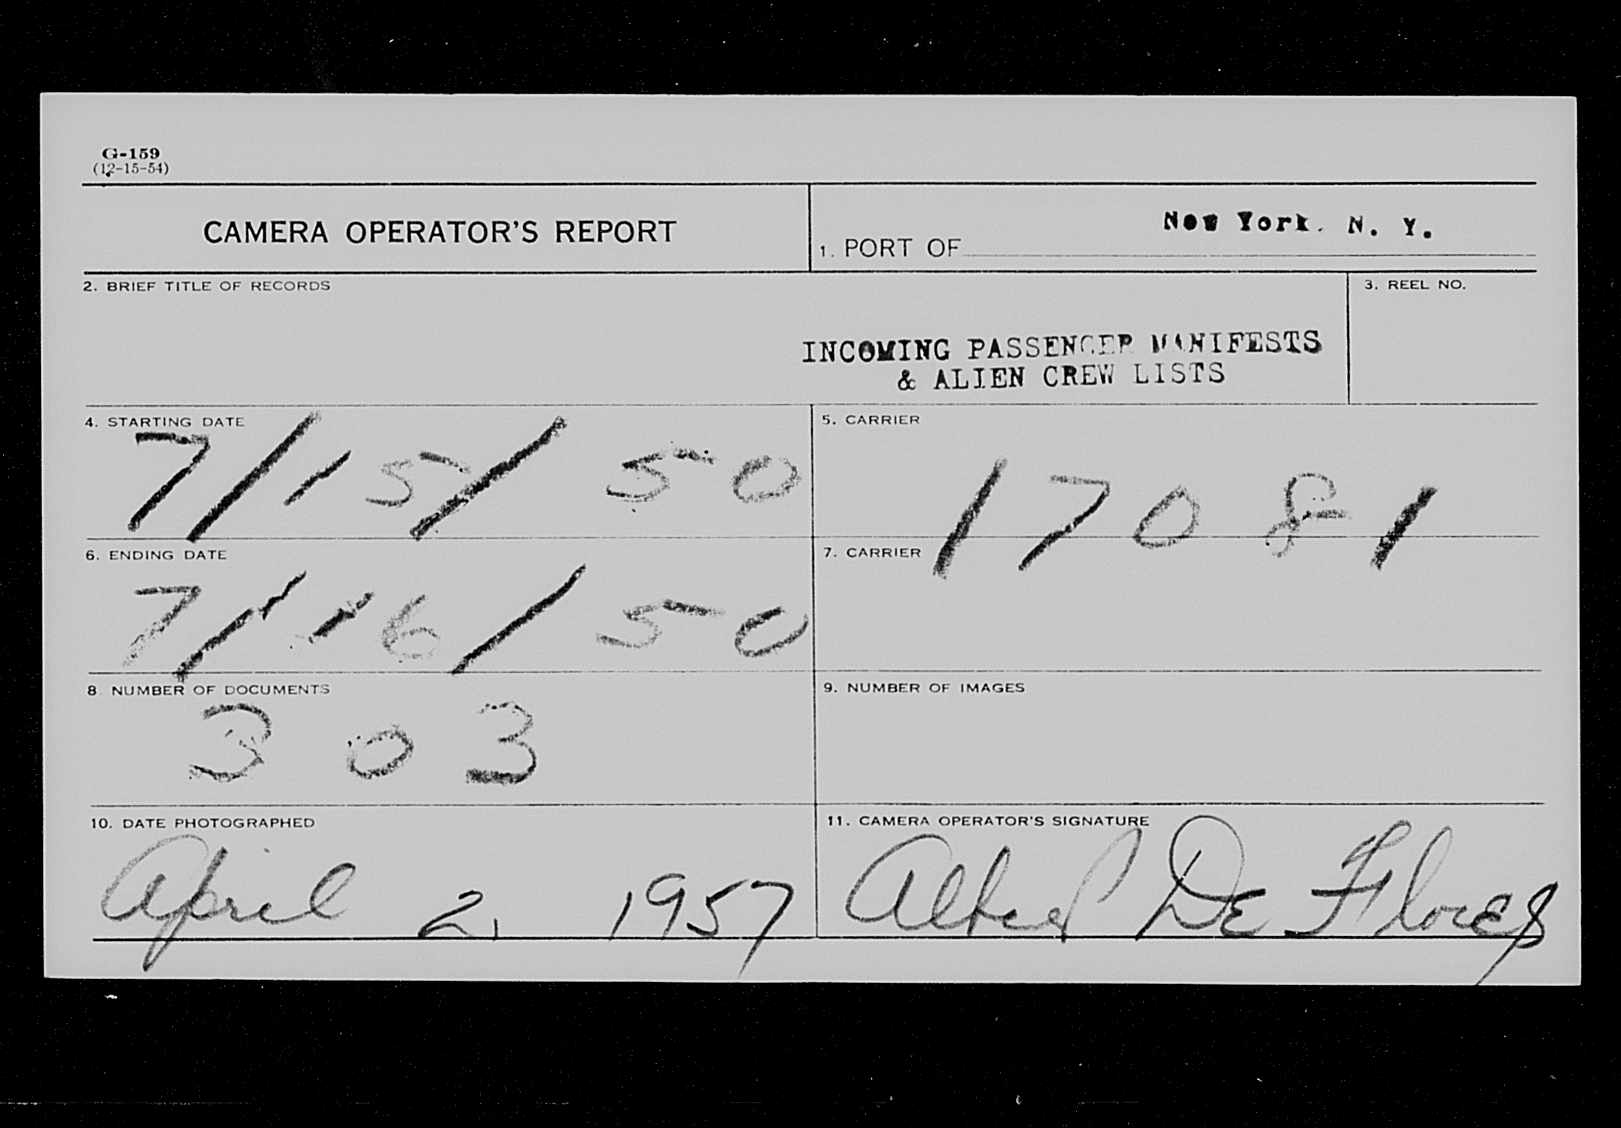 G-159
(12-15-54)
CAMERA OPERATOR'S REPORT
1. PORT OF New York, N. Y.
2. BRIEF TITLE OF RECORDS
3. REEL NO.
INCOMING PASSENGER MANIFESTS
& ALIEN CREW LISTS
4. STARTING DATE
7/15/50
5. CARRIER
17081
6. ENDING DATE
7/16/50
7. CARRIER
8 NUMBER OF DOCUMENTS
303
9. NUMBER OF IMAGES
10. DATE PHOTOGRAPHED
April 2, 1957
11. CAMERA OPERATOR'S SIGNATURE
Alfred De Flores